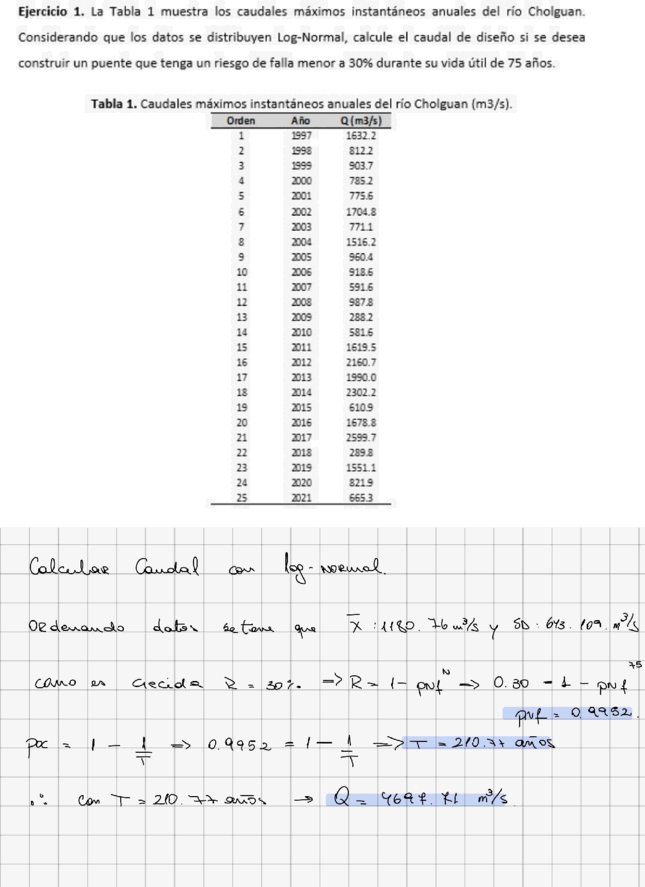 Ejercicio 1. La Tabla 1 muestra los caudales máximos instantáneos anuales del río Cholguan.
Considerando que los datos se distribuyen Log-Normal, calcule el caudal de diseño si se desea
construir un puente que tenga un riesgo de falla menor a 30% durante su vida útil de 75 años.
Tabla 1. Caudales máximos instantáneos anuales del río Cholguan (m3/s).
Orden Año Q(m3/s)
1 1997 1632.2
2 1998 812.2
3 1999 903.7
4 2000 785.2
5 2001 775.6
6 2002 1704.8
7 2003 771.1
8 2004 1516.2
9 2005 960.4
10 2006 918.6
11 2007 591.6
12 2008 987.8
13 2009 288.2
14 2010 581.6
15 2011 1619.5
16 2012 2160.7
17 2013 1990.0
18 2014 2302.2
19 2015 610.9
20 2016 1678.8
21 2017 2599.7
22 2018 289.8
23 2019 1551.1
24 2020 821.9
25 2021 665.3
Calcular Caudal con log-normal.
Ordenando datos se tiene que x̄ : 1180.76 m³/s y SD : 643.109 m³/s
como es crecida R = 30% => R = 1 - pnf^N -> 0.30 = 1 - pnf^75
pnf = 0.9952.
= 1 - 1/T => 0.9952 = 1 - 1/T => T = 210.77 años
∴ con T = 210.77 años -> Q = 4697.71 m³/s